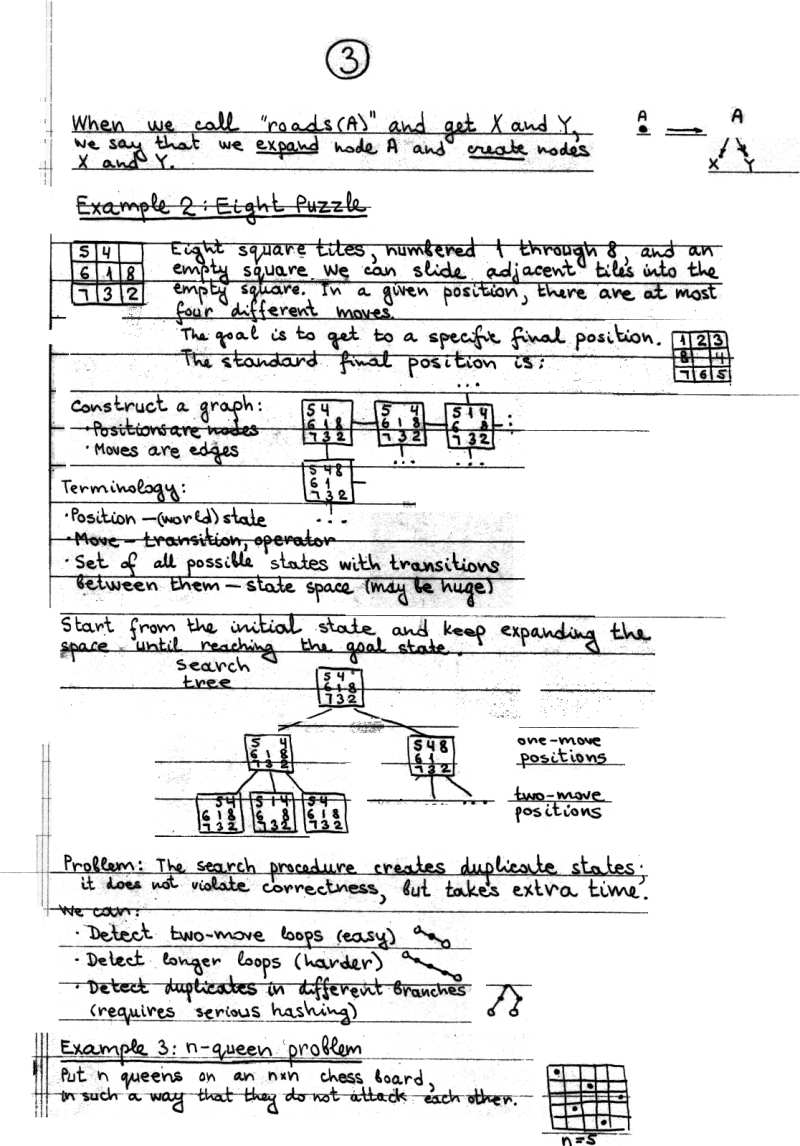 3
When we call "roads(A)" and get X and Y,
we say that we expand node A and create nodes
X and Y.
A
A
X Y
Example 2: Eight Puzzle
5 4
6 1 8
7 3 2
Eight square tiles, numbered 1 through 8, and an
empty square. We can slide adjacent tiles into the
empty square. In a given position, there are at most
four different moves.
The goal is to get to a specific final position.
The standard final position is:
1 2 3
8 4
7 6 5
Construct a graph:
· Positions are nodes
· Moves are edges
...
5 4
6 1 8
7 3 2
5 4
6 1 8
7 3 2
...
5 1 4
6 8
7 3 2
...
5 4 8
6 1
7 3 2
...
Terminology:
· Position – (world) state
· Move – transition, operator
· Set of all possible states with transitions
between them – state space (may be huge)
Start from the initial state and keep expanding the
space until reaching the goal state.
search
tree
5 4
6 1 8
7 3 2
5 4
6 1 8
7 3 2
5 4 8
6 1
7 3 2
one-move
positions
5 4
6 1 8
7 3 2
5 1 4
6 8
7 3 2
5 4
6 1 8
7 3 2
...
two-move
positions
Problem: The search procedure creates duplicate states;
it does not violate correctness, but takes extra time.
We can:
· Detect two-move loops (easy)
· Detect longer loops (harder)
· Detect duplicates in different branches
(requires serious hashing)
Example 3: n-queen problem
Put n queens on an n×n chess board,
in such a way that they do not attack each other.
n=5